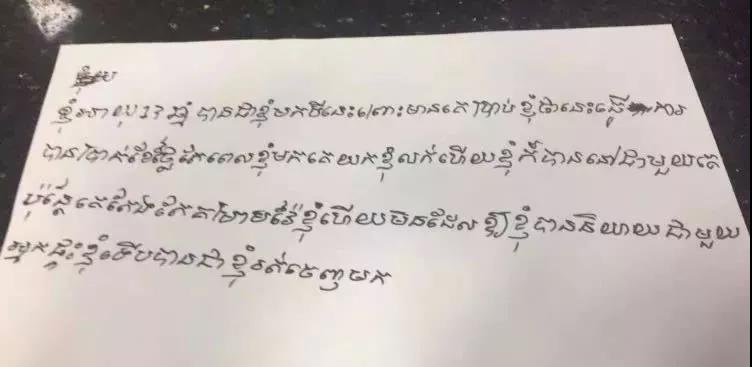 ខ្ញុំអាយុ17ឆ្នាំ បានជាខ្ញុំមកទីនេះព្រោះមានគេប្រាប់ខ្ញុំថានេះធ្វើការ
បានប្រាក់ខែថ្លៃតែពេលខ្ញុំមកគេយកខ្ញុំលក់ហើយខ្ញុំក៏បាននៅជាមួយគេ
ប៉ុន្តែគេតែងតែតាមវ៉ៃខ្ញុំហើយមិនដែលឱ្យខ្ញុំបាននិយាយជាមួយ
អ្នកផ្ទះខ្ញុំទើបបានជាខ្ញុំរត់ចេញមក